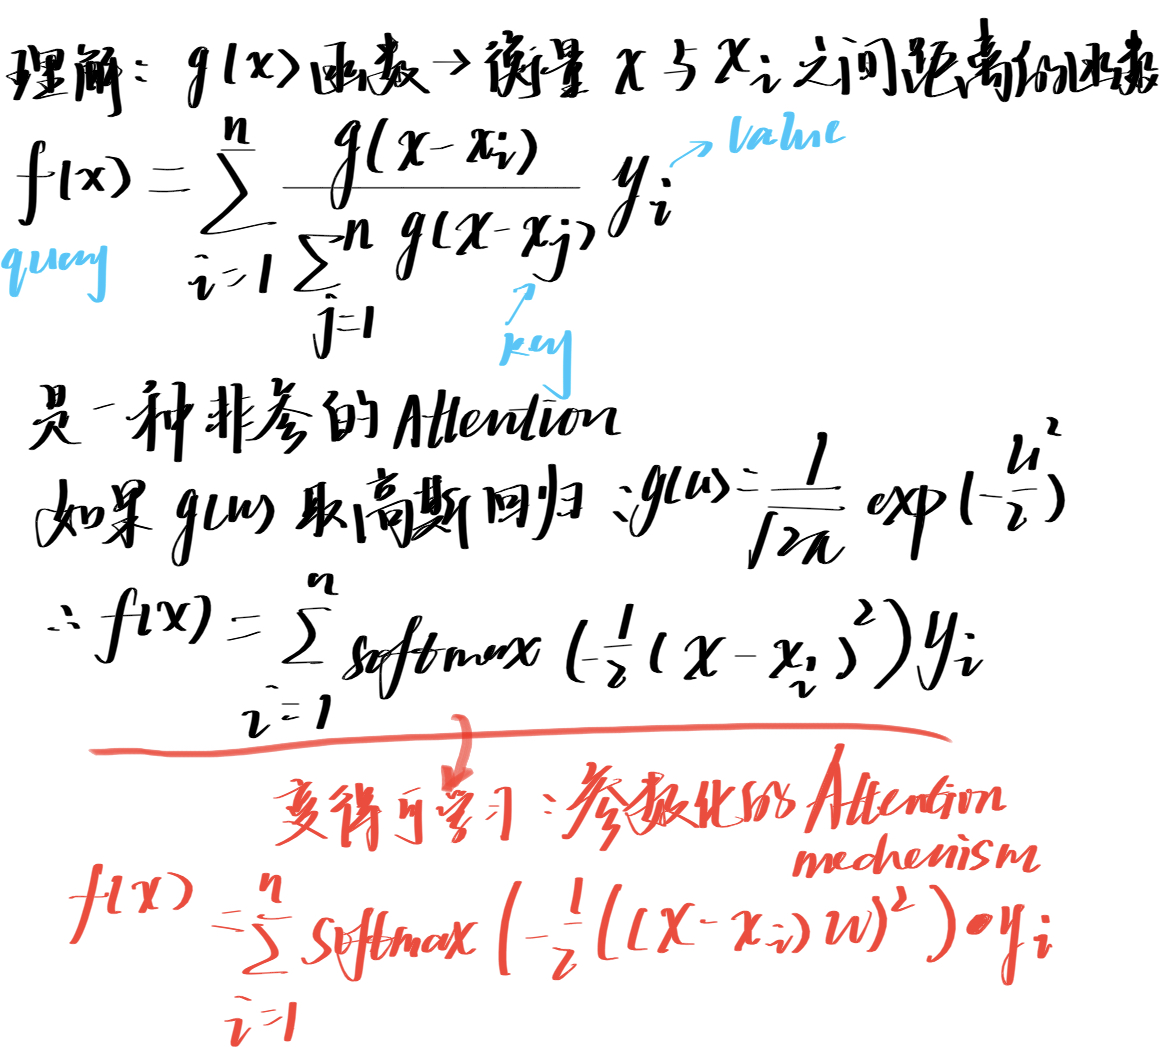 理解: g(x)函数→衡量 x 与 xi 之间距离的函数
f(x) = ∑_{i=1}^{n} g(x-xi) / ∑_{j=1}^{n} g(x-xj) yi → value
query
key
是一种非参的Attention
如果 g(u) 取高斯回归 ∴g(u) = 1/√2π exp(-u²/2)
∴ f(x) = ∑_{i=1}^{n} softmax (-1/2(x-xi)²) yi
变得可学习: 参数化的 Attention
mechenism
f(x) = ∑_{i=1}^{n} softmax (-1/2((x-xi)w)²)•yi